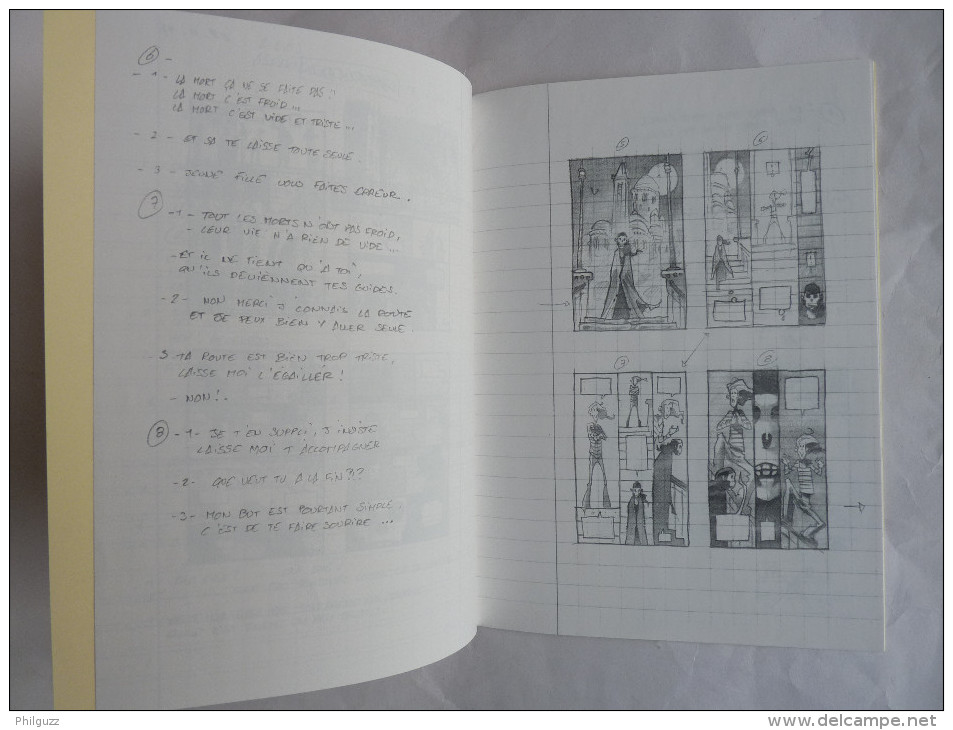 6 -
- 1 - LA MORT ÇA NE SE FAITE PAS !!
LA MORT C'EST FROID ...
LA MORT C'EST VIDE ET TRISTE ...
- 2 - ET SA TE LAISSE TOUTE SEULE.
- 3 - JEUNE FILLE VOUS FAITES ERREUR.
7
- 1 - TOUT LES MORTS N'ONT PAS FROID,
- LEUR VIE N'A RIEN DE VIDE ...
- ET IL NE TIENT QU'A TOI,
QU'ILS DEVIENNENT TES GUIDES.
- 2 - NON MERCI J'CONNAIS LA ROUTE
ET JE PEUX BIEN Y ALLER SEULE.
3 - TA ROUTE EST BIEN TROP TRISTE,
LAISSE MOI L'ÉGAILLER !
- NON !.
8 - 1 - JE T'EN SUPPLI, J'INSISTE
LAISSE MOI T'ACCOMPAGNER
- 2 - QUE VEUT TU A LA FIN ??
- 3 - MON BUT EST POURTANT SIMPLE,
C'EST DE TE FAIRE SOURIRE ...
5
6
7
8
Philguzz
www.delcampe.net